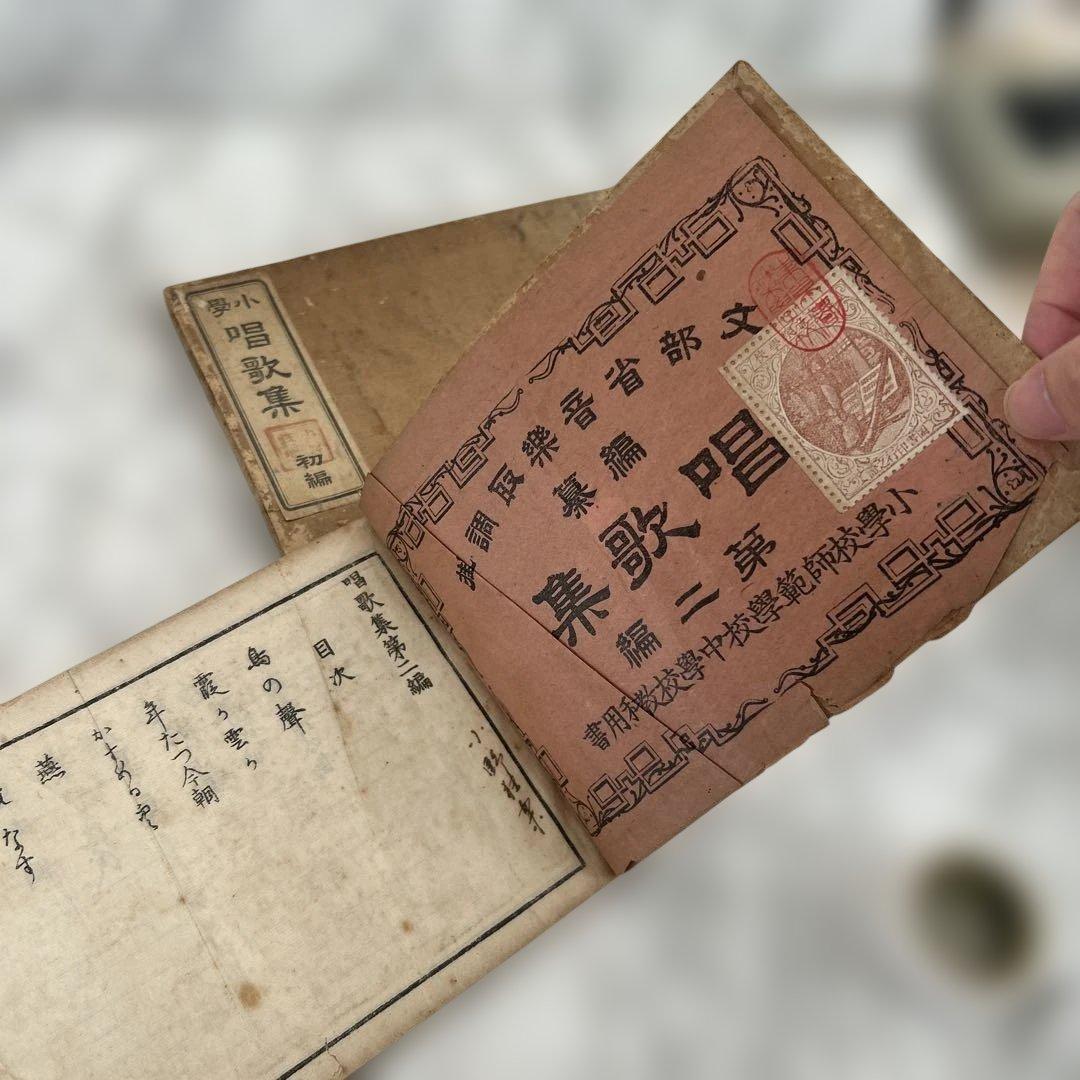 小學
唱歌集
初編
文部省音樂取調掛
編纂
唱歌集
第二編
小學校師範學校中學校教科用書
唱歌集第二編
目次
鳥の聲
霞か雲か
年たつ今朝
かすめる空
燕